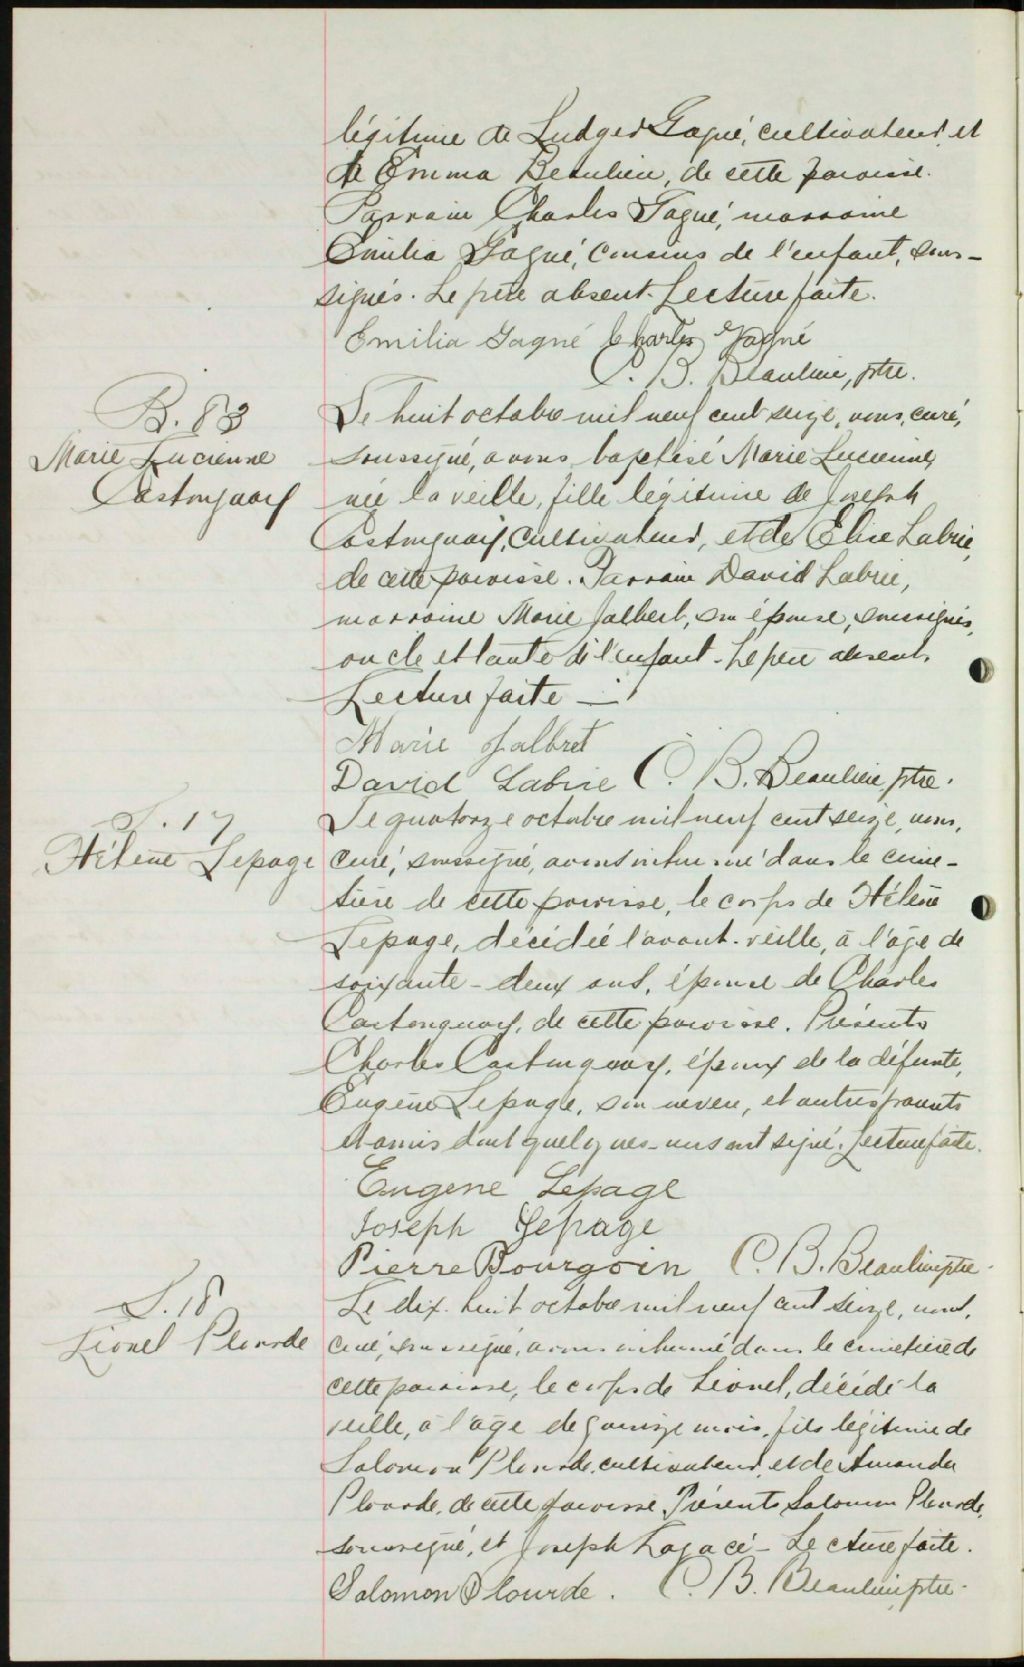 légitime de Ludger Gagné, cultivateur, et
de Emma Beaulieu, de cette paroisse.
Parrain Charles Gagné, marraine
Emilia Gagné, cousins de l'enfant, sous-
signés. Le père absent. Lecture faite.
Emilia Gagné Charles Gagné
C. B. Beaulieu, ptre.
B. 83
Marie Lucienne
Castonguay
Le huit octobre mil neuf cent seize, nous, curé,
soussigné, avons baptisé Marie Lucienne,
née la veille, fille légitime de Joseph
Castonguay, cultivateur, et de Elise Labrie,
de cette paroisse. Parrain David Labrie,
marraine Marie Jalbert, son épouse, soussignés,
oncle et tante de l'enfant. Le père absent.
Lecture faite —
Marie Jalbret
David Labrie C. B. Beaulieu, ptre.
S. 17
Hélène Lepage
Le quatorze octobre mil neuf cent seize, nous,
curé, soussigné, avons inhumé dans le cime-
tière de cette paroisse, le corps de Hélène
Lepage, décédée l'avant-veille, à l'âge de
soixante-deux ans, épouse de Charles
Castonguay, de cette paroisse. Présents
Charles Castonguay, époux de la défunte,
Eugène Lepage, son neveu, et autres parents
et amis dont quelques-uns ont signé. Lecture faite.
Eugene Lepage
Joseph Lepage
Pierre Bourgoin C. B. Beaulieu, ptre.
S. 18
Lionel Plourde
Le dix-huit octobre mil neuf cent seize, nous,
curé, soussigné, avons inhumé dans le cimetière de
cette paroisse, le corps de Lionel, décédé la
veille, à l'âge de quinze mois, fils légitime de
Salomon Plourde, cultivateur, et de Amanda
Plourde, de cette paroisse. Présents Salomon Plourde,
soussigné, et Joseph Lagacé - Lecture faite.
Salomon Plourde. C. B. Beaulieu, ptre.